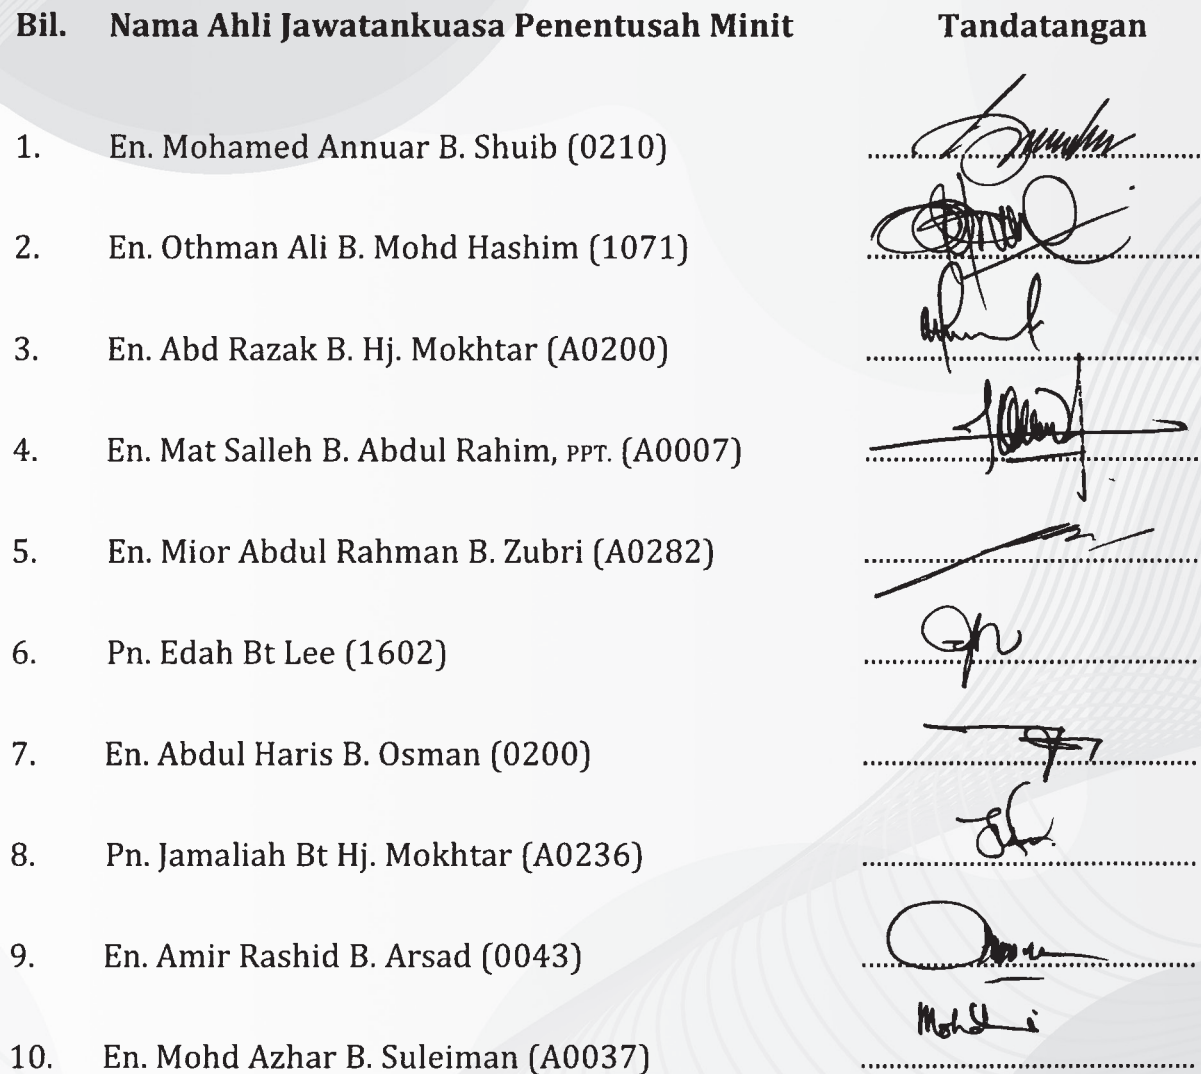 Bil. Nama Ahli Jawatankuasa Penentusah Minit Tandatangan
1. En. Mohamed Annuar B. Shuib (0210)
2. En. Othman Ali B. Mohd Hashim (1071)
3. En. Abd Razak B. Hj. Mokhtar (A0200)
4. En. Mat Salleh B. Abdul Rahim, PPT. (A0007)
5. En. Mior Abdul Rahman B. Zubri (A0282)
6. Pn. Edah Bt Lee (1602)
7. En. Abdul Haris B. Osman (0200)
8. Pn. Jamaliah Bt Hj. Mokhtar (A0236)
9. En. Amir Rashid B. Arsad (0043)
10. En. Mohd Azhar B. Suleiman (A0037)